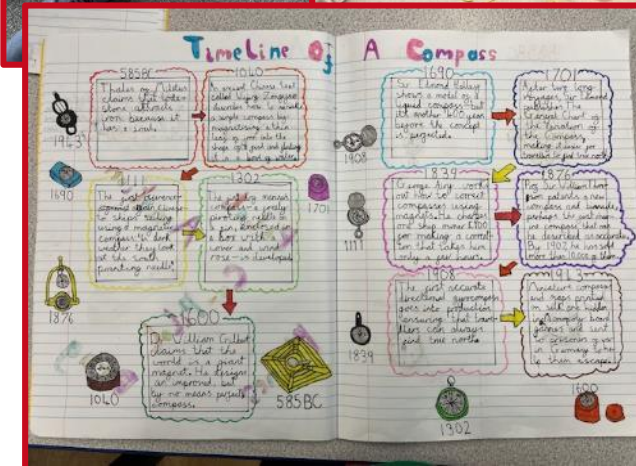 TimeLine Of A Compass
585BC
Thales of Miletus
claims that lode-
stone attracts
iron because it
has a soul.
1040
An ancient Chinese text
called
describes how to
a simple compass by
magnetising a thin
leaf of iron into the
shape of a fish and placing
it in a bowl of water.
1111
The first
to ships sailing
using a magnetic
compass "in dark
weather they look
at the south
pointing needle".
1302
The
compass - a
pivoting needle
a pin, enclosed in
a box with a
cover and wind
rose - is developed
1600
Dr William Gilbert
claims that the
world is a giant
magnet. He designs
an improved, but
by no means perfect
compass.
1690
Sir Edmond Halley
shows a
liquid compass but
its another years
before the concept
is perfected.
1701
After two long
voyages, Sir Edmond
publishes The
General Chart of
the Variation of
the Compass,
making it easier for
travellers to find true north.
1839
George Airy works
out how to correct
compasses using
magnets. He charges
one ship more
for making a
that takes him
only a few hours.
1876
Sir William
patents a new
compass and binnacle,
perhaps the first
compass that can
be described as accurate.
By 1902 he has sold
more than 10,000 of them
1908
The first accurate
directional gyrocompass
goes into production
ensuring that
can always
find true north.
1943
Miniature compasses
and maps printed
on silk are hidden
in board
games and sent
to prisoners of war
in Germany to help
them escape.
1943
1690
1876
1040
1701
585BC
1908
1111
1839
1302
1600